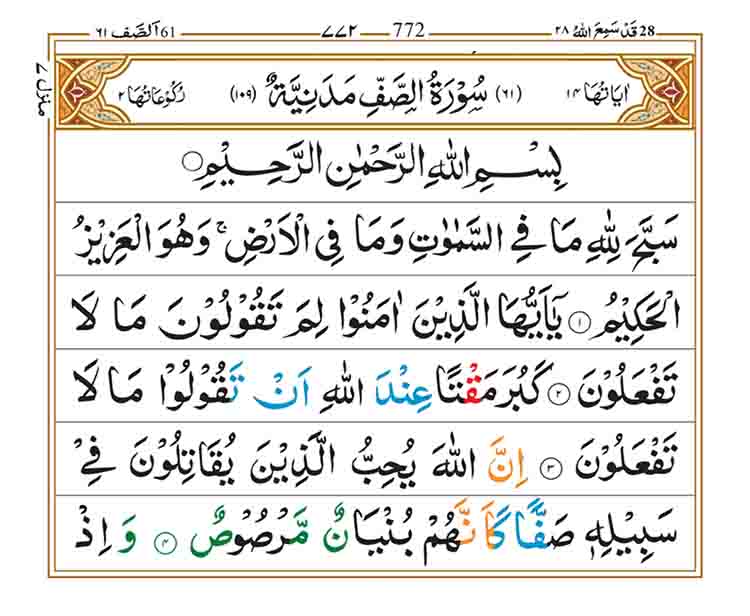 28 قَدْ سَمِعَ اللهُ ٢٨ 772 ٧٧٢ 61 اَلصَّف ٦١
منزل ٧
اٰيَاتُهَا ١٤ (٦١) سُوْرَةُ الصَّفِّ مَدَنِيَّةٌ (١٠٩) رُكُوْعَاتُهَا ٢
بِسْمِ اللهِ الرَّحْمٰنِ الرَّحِيْمِ
سَبَّحَ لِلّٰهِ مَا فِي السَّمٰوٰتِ وَمَا فِي الْاَرْضِ ۚ وَهُوَ الْعَزِيْزُ
الْحَكِيْمُ ١ يٰۤاَيُّهَا الَّذِيْنَ اٰمَنُوْا لِمَ تَقُوْلُوْنَ مَا لَا
تَفْعَلُوْنَ ٢ كَبُرَ مَقْتًا عِنْدَ اللهِ اَنْ تَقُوْلُوْا مَا لَا
تَفْعَلُوْنَ ٣ اِنَّ اللهَ يُحِبُّ الَّذِيْنَ يُقَاتِلُوْنَ فِيْ
سَبِيْلِهٖ صَفًّا كَاَنَّهُمْ بُنْيَانٌ مَّرْصُوْصٌ ٤ وَاِذْ